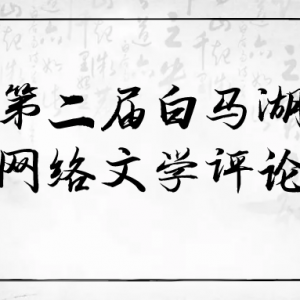 第二届白马湖
网络文学评论